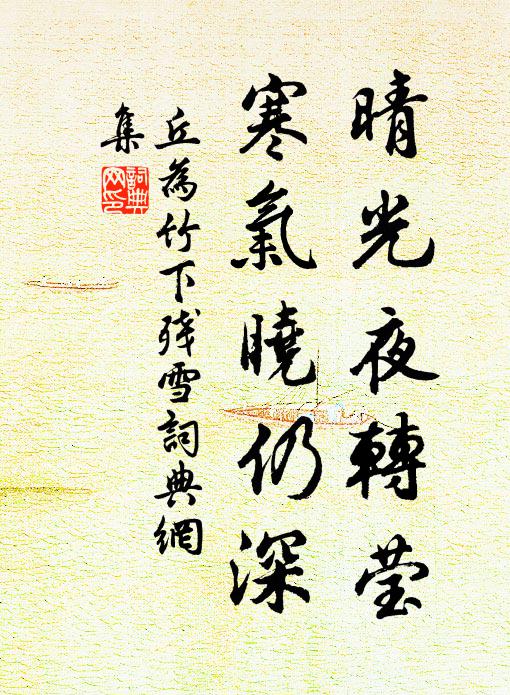 晴光夜轉莹
寒氣曉仍深
丘為竹下残雪詞典網
集
詞典
网印